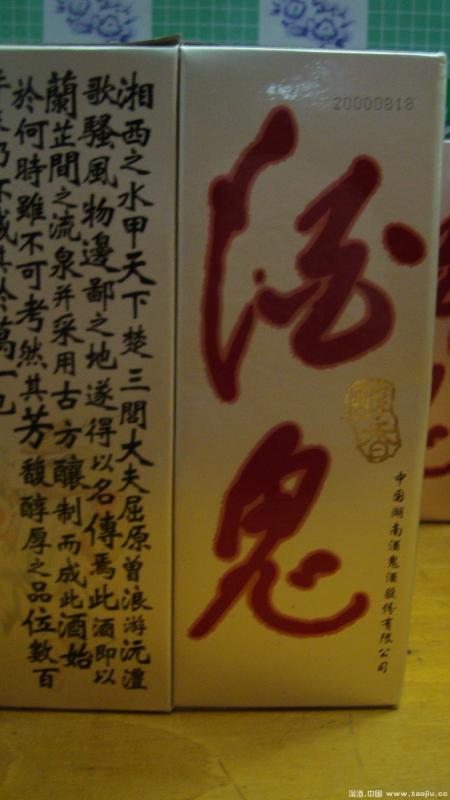 湘西之水甲天下楚三閭大夫屈原曾浪游沅澧
歌騷風物邊鄙之地遂得以名傳焉此酒即以
蘭芷間之流泉并采用古方釀制而成此酒始
於何時雖不可考然其芳馥醇厚之品位數百
20000818
酒鬼
醇香
中国湖南酒鬼酒股份有限公司
国酒.中国 www.taojiu.cc